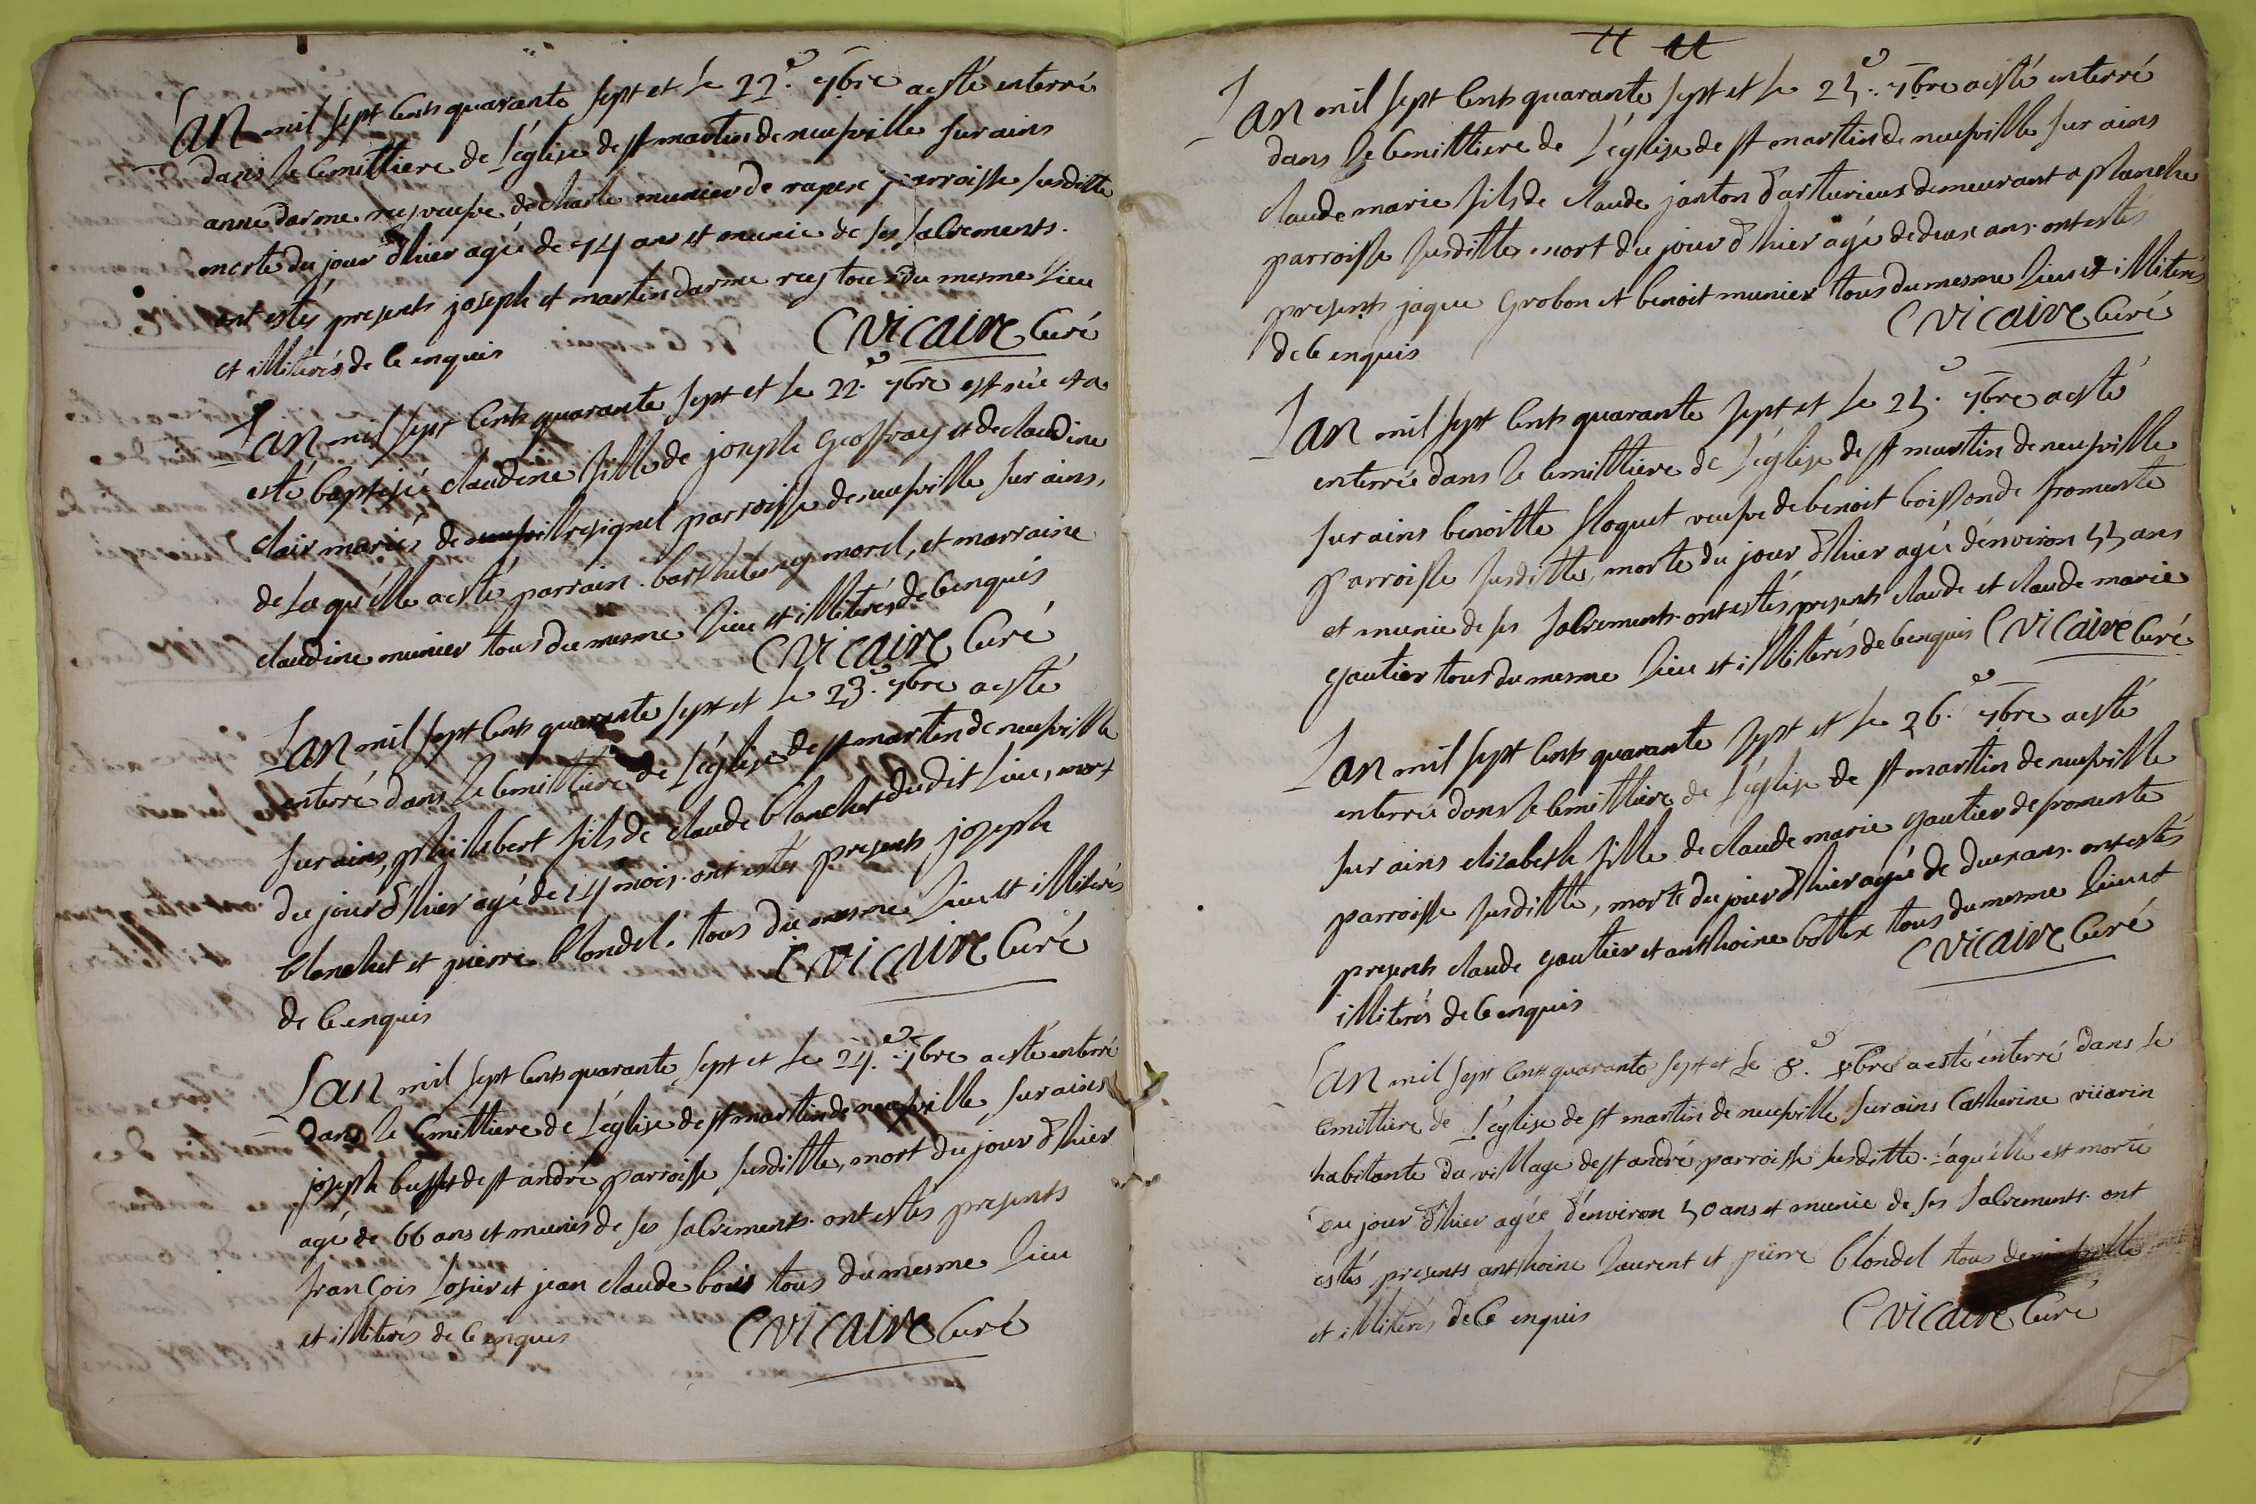 Lan mil sept cents quarante sept et le 22.e 7bre a esté enterré
dans le cemittiere de l'église de st martin de neufville sur ains
anne darme rey veufve de charle munier de rapese parroisse susditte
morte du jour d'hier agée de 74 ans et munie de ses sacrements.
ont estés presents joseph et martin darme rey tous du mesme lieu
et illiterés de ce enquis C Vicaire Curé
Lan mil sept cents quarante sept et le 22.e 7bre est née et a
esté baptisée claudine fille de joseph Geoffray et de claudine
clair mariés de resignel parroisse de neufville sur ains,
de laqu'élle a esté parrain barthelemy morel, et marraine
claudine munier tous du mesme lieu et illiterés de ce enquis
C Vicaire Curé
Lan mil sept cents quarante sept et le 23.e 7bre a esté
enterré dans le cemittiere de l'église de st martin de neufville
sur ains, philibert fils de claude blanchet du dit lieu, mort
du jour d'hier agé de 14 mois. ont estés presents joseph
blanchet et pierre blondel. tous du mesme lieu et illiterés
de ce enquis C Vicaire Curé
Lan mil sept cents quarante sept et le 24.e 7bre a esté enterré
dans le cemittiere de l'église de st martin de neufville sur ains
joseph buffet de st andré parroisse susditte, mort du jour d'hier
agé de 66 ans et munis de ses sacrements. ont estés presents
françois losier et jean claude bois tous du mesme lieu
et illiterés de ce enquis C Vicaire Curé
11 11
Lan mil sept cents quarante sept et le 25.e 7bre a esté enterré
dans le cemittiere de l'église de st martin de neufville sur ains
claude marie fils de claude janton d'arturieus demeurant a planche
parroisse susditte. mort du jour d'hier agé de deux ans. ont estés
presents jaque Grobon et benoit munier tous du mesme lieu et illiterés
de ce enquis C Vicaire Curé
Lan mil sept cents quarante sept et le 25.e 7bre a esté
enterrée dans le cemittiere de l'église de st martin de neufville
sur ains benoitte floquet veufve de benoit boisson de fromente
parroisse susditte, morte du jour d'hier agée d'énviron 55 ans
et munie de ses sacrements. ont estés presents claude et claude marie
gautier tous du mesme lieu et illiterés de ce enquis C Vicaire Curé
Lan mil sept cents quarante sept et le 26.e 7bre a esté
enterrée dans le cemittiere de l'église de st martin de neufville
sur ains elizabeth fille de claude marie gautier de fromente
parroisse susditte, morte du jour d'hier agée de deux ans. ont estés
presents claude gautier et anthoine bottex tous du mesme lieu et
illiterés de ce enquis C Vicaire Curé
Lan mil sept cents quarante sept et le 8.e 8bre a esté énterré dans le
cemittiere de l'église de st martin de neufville sur ains Catherine viiarin
habitante du village de st andré parroisse susditte. laqu'élle est morte
du jour d'hier agée d'énviron 50 ans et munie de ses sacrements. ont
éstés présents anthoine laurent et piérre blondel tous
et illitérés de ce enquis C Vicaire Curé